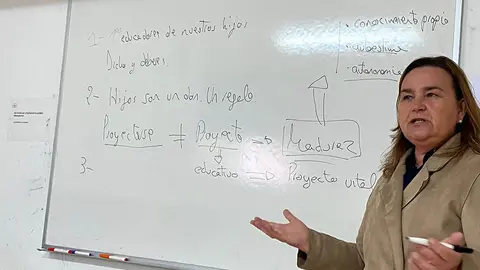 1- educadores de nuestros hijos
Dicho y deberes.
2- Hijos son un don. Un regalo.
Proyectarse ≠ Proyecto ⇒ Madurez
educativo ⇒ Proyecto vital
3-
· conocimiento propio
· autoestima
· autonomía